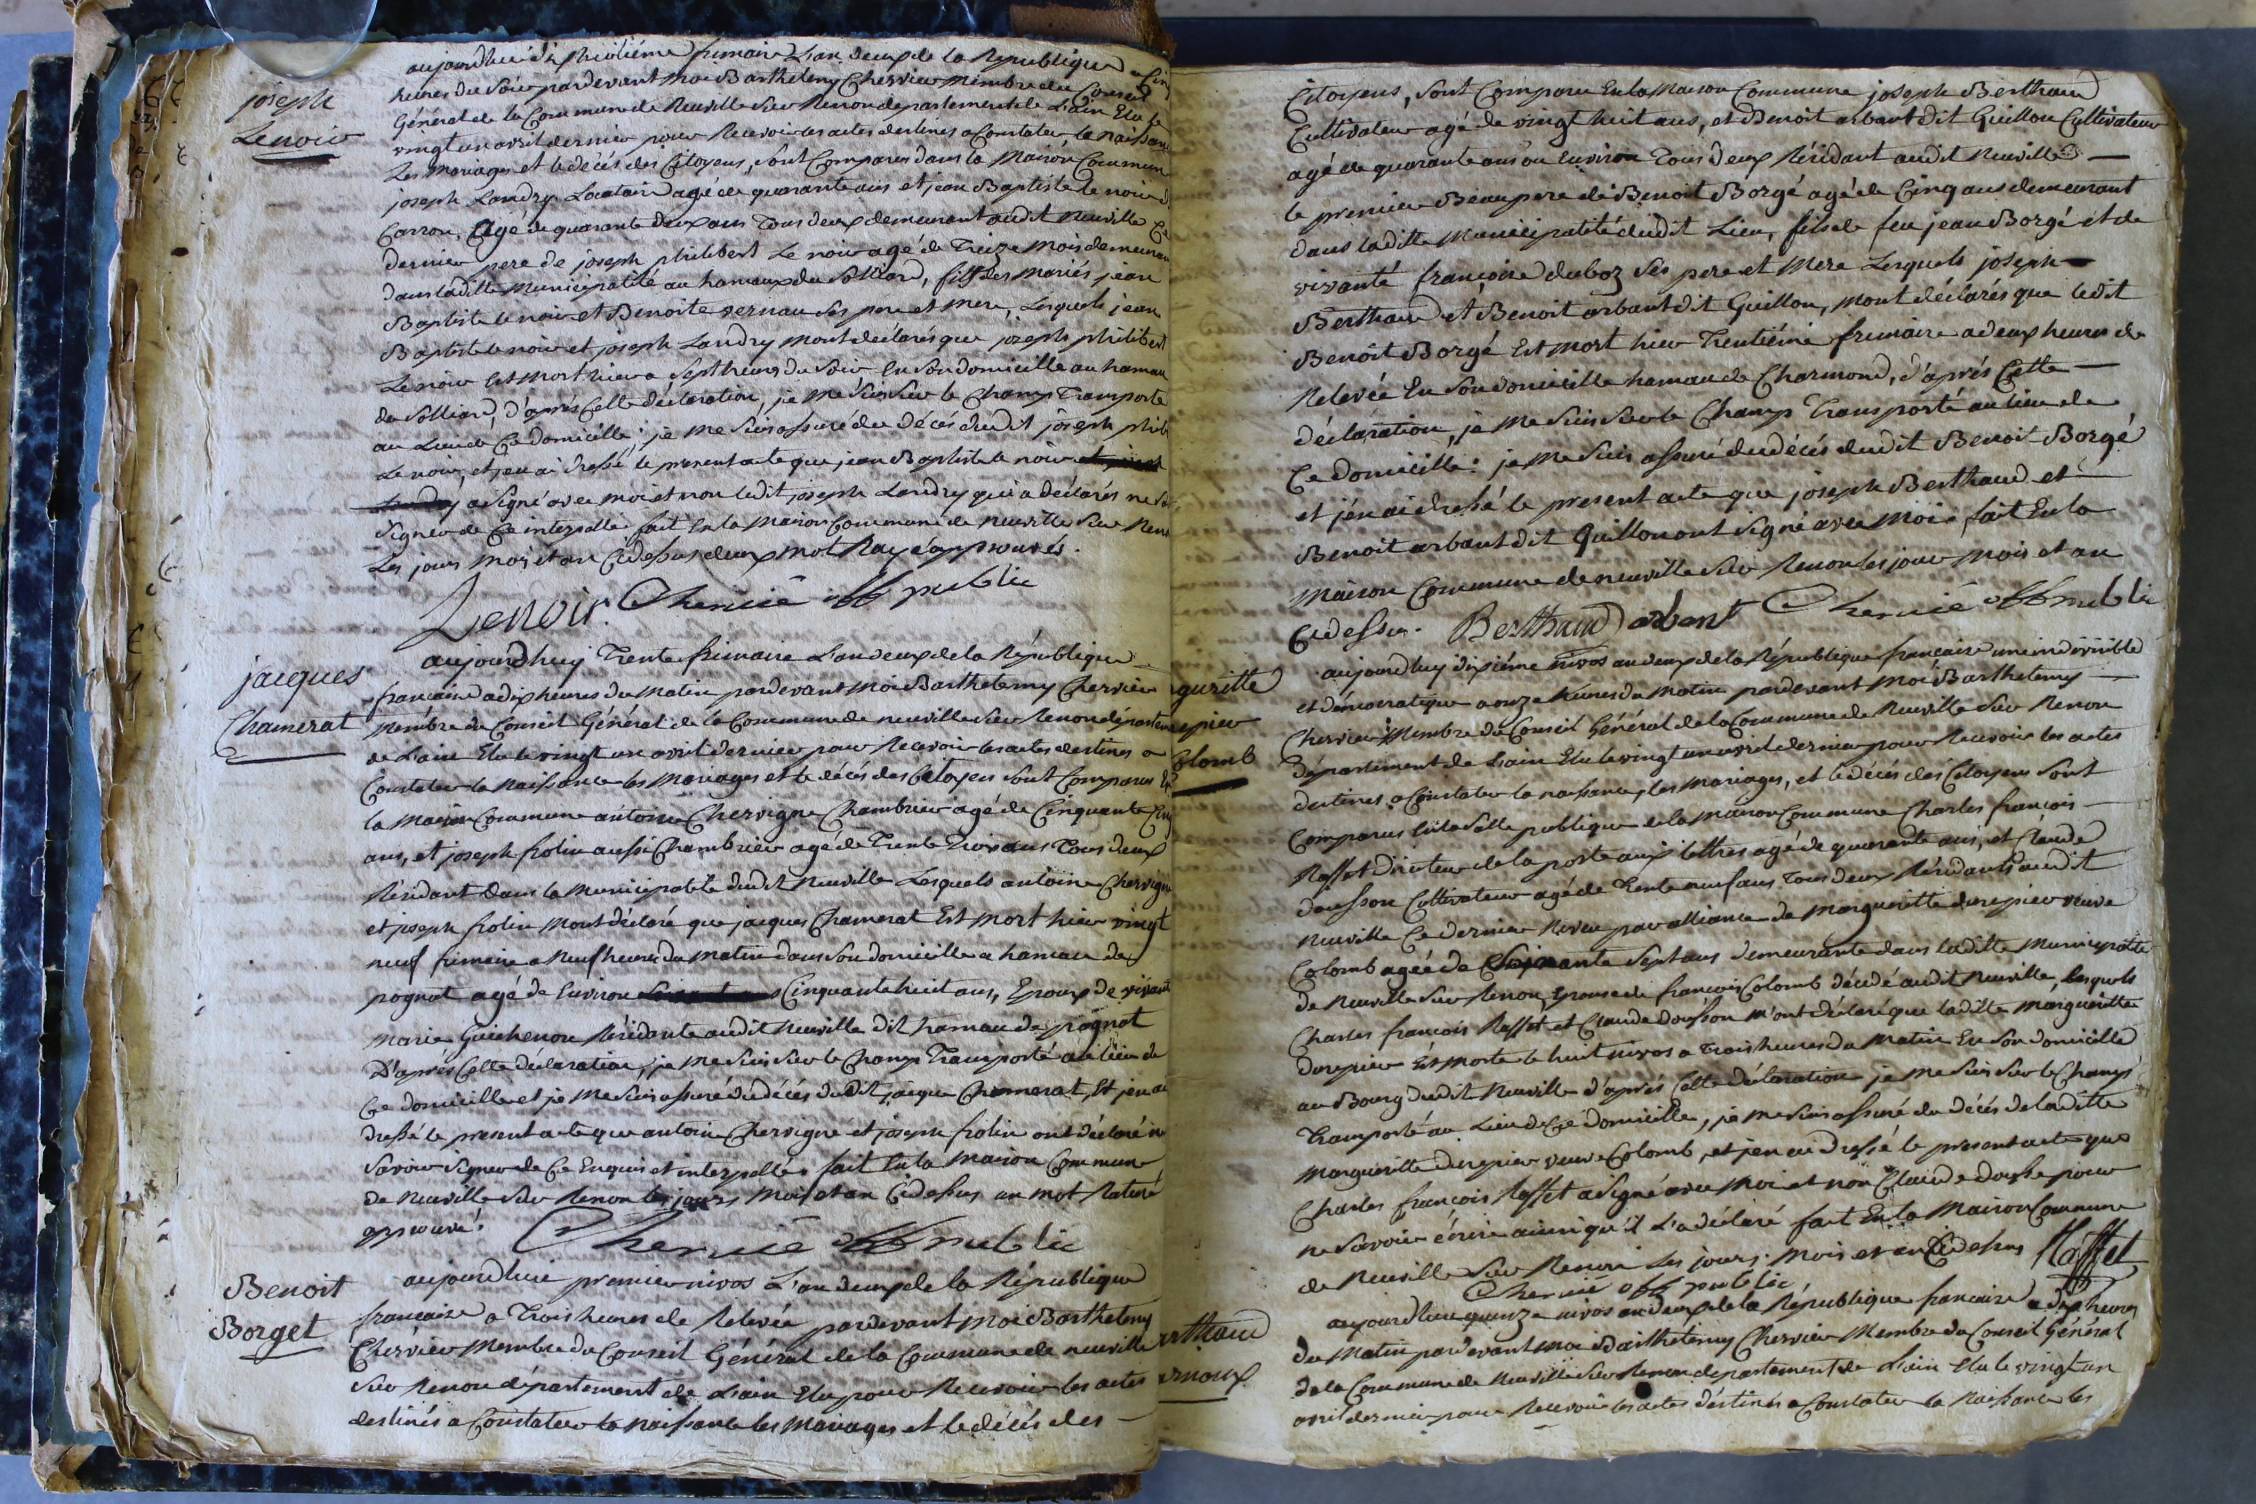 joseph
Lenoir
aujourdhui dixhuitiéme frimaire L'an deux de la République a Cinq
heures du Soir pardevant moi Barthélemy Chervier Membre du Conseil
Général de la Commune de Neuville Sur Renon departement de L'ain Elu le
vingt un avril dernier pour Recevoir les actes destines a Constater la naissance
Les Mariages et le décés des Citoyens, sont Comparus dans la Maison Commune
joseph Landry Locataire agé de quarante ans et jean Baptiste Le noir
Carron, agé de quarante deux ans Tous deux demeurant audit Neuville Ce
dernier pere de joseph philibert Le noir agé de Treize Mois demeurant
dans laditte Municipalité au hamaux du Solliard, fils des mariés jean
Baptiste le noir et Benoite vernau Ses pere et mere, Lesquels jean
Baptiste le noir et joseph Landry mont déclarés que joseph philibert
Le noir Est Mort hier a Sept heures du Soir En Son domicille au hamau
du Solliard, d'aprés Cette déclaration, je me Suis Sur le Champ Transporté
au Lieu de Ce domicille, je me Suis assuré du décés dudit joseph philib
Le noir, et jen ai dressé le present acte que jean Baptiste le noir
a Signé avec moi et non ledit joseph Landry qui a declarés ne
Signer de Ce interpellé fait En la Maison Commune de neuville Sur Renon
Les jours mois et an Cidessus deux mot Rayé approuvés.
Lenoir. Chervié off public
jacques
Chamerat
aujourdhuy Trente frimaire L'an deux de la République
francaise a dix heures du Matin pardevant Moi Barthelemy Chervier
Membre du Conseil Général de la Commune de neuville Sur Renon départem
de L'ain Elu le vingt un avril dernier pour Recevoir les actes destines a
Constater la naissance les Mariages et le décés des Citoyens Sont Comparus En
la Maison Commune antoine Chervigne Chambrier agé de Cinquante Cinq
ans, et joseph frolin aussi Chambrier agé de Trente Trois ans Tous deux
Résidant Dans la Municipalité dudit Neuville Lesquels antoine Chervigne
et joseph frolin Mont déclaré que jacques Chamerat Est mort hier vingt
neuf frimaire a Neuf heures du Matin dans Son domicille a hamau de
pognat agé de Environ Cinquante huit ans, Epoux de vivante
Marie Guichenon Résidante audit Neuville dit hamau de pognat
D'aprés Cette déclaration, je me Suis Sur le Champ Transporté au lieu de
Ce domicille et je me Suis assuré du décés dudit jacque Chamerat, Et jen ai
dressé le present acte que antoine Chervigne et joseph frolin ont déclaré ne
Savoir Signer de Ce Enquis et interpelles fait En la Maison Commune
de Neuville Sur Renon les jours Mois et an Cidessus un mot Raturé
approuvé.
Chervié off public
Benoit
Borget
aujourdhui premier nivos L'an deux de la République
francaise a Trois heures de Relevée pardevant Moi Barthelemy
Chervier Membre du Conseil Général de la Commune de neuville
Sur Renon département de L'ain Elu pour Recevoir les actes
destinés a Constater la Naissance les Mariages et le décés des
Citoyens, Sont Comparu En la Maison Commune joseph Berthaud
Cultivateur agé de vingt huit ans, et Benoit arbant dit Guillon Cultivateur
agé de quarante ans ou Environ Tous deux Résidant audit Neuville
le premier Beaupere de Benoit Borgé agé de Cinq ans demeurant
dans laditte Municipalité dudit Lieu, fils de feu jean Borgé et de
vivante françoise duboz Ses pere et Mere Lesquels joseph
Berthaud et Benoit arbant dit Guillon, mont déclarés que ledit
Benoit Borgé Est Mort hier Trentiéme frimaire a deux heures de
Relevée En Son domicille hamau de Charmond, d'aprés Cette
déclaration, je me Suis Sur le Champ Transporté au lieu de
Ce domicille: je me Suis assuré du décés dudit Benoit Borgé
et jén ai dressé le present acte que joseph Berthaud et
Benoit arbant dit Guillon ont Signé avec Moi fait En la
Maison Commune de neuville Sur Renon les jour Mois et an
Cidessus. Berthaud arbant Chervié off public
guritte
repier
Colomb
aujourdhuy dixiéme nivos an deux de la République francaise une indivisible
et démocratique a onze heures du Matin pardevant Moi Barthelemy
Chervier Membre du Conseil Général de la Commune de Neuville Sur Renon
département de L'ain Elu le vingt un avril dernier pour Recevoir les actes
destines a Constater la naissance, les Mariages, et le décés des Citoyens Sont
Comparus En la Salle publique de la Maison Commune Charles francois
Raffet directeur de la poste aux lettres agé de quarante ans, et Claude
dousson Cultivateur agé de Trente neuf ans Tous deux Résidants audit
neuville Ce dernier Neveu par alliance de Marguerite durepier veuve
Colomb agée de Soixante Sept ans demeurante dans laditte Municipalité
de Neuville Sur Renon, Epouse de francois Colomb décédé audit Neuville, Lesquels
Charles francois Raffet et Claude dousson m'ont déclaré que laditte Margueritte
durepier Est Morte le huit nivos a Trois heures du Matin En Son domicille
au Bourg dudit Neuville d'aprés Cette déclaration je me Suis Sur le Champ
Transporté au Lieu de Ce domicille, je me Suis assuré du décés de laditte
Margueritte durepier veuve Colomb, et jen ai dressé le present acte que
Charles francois Raffet a Signé avec Moi et non Claude dousse pour
ne Savoir écrire ainsi qu'il L'a déclaré fait En la Maison Commune
de Neuville Sur Renon Les jours Mois et an Cidessus Raffet
Chervié off public
rthaud
rnoux
aujourdhui quinze nivos an deux de la République francaise a dix heures
du Matin pardevant Moi Barthelemy Chervier Membre du Conseil Général
de la Commune de Neuville Sur Renon departement de L'ain Elu le vingt un
avril dernier pour Recevoir les actes déstinés a Constater la Naissance les